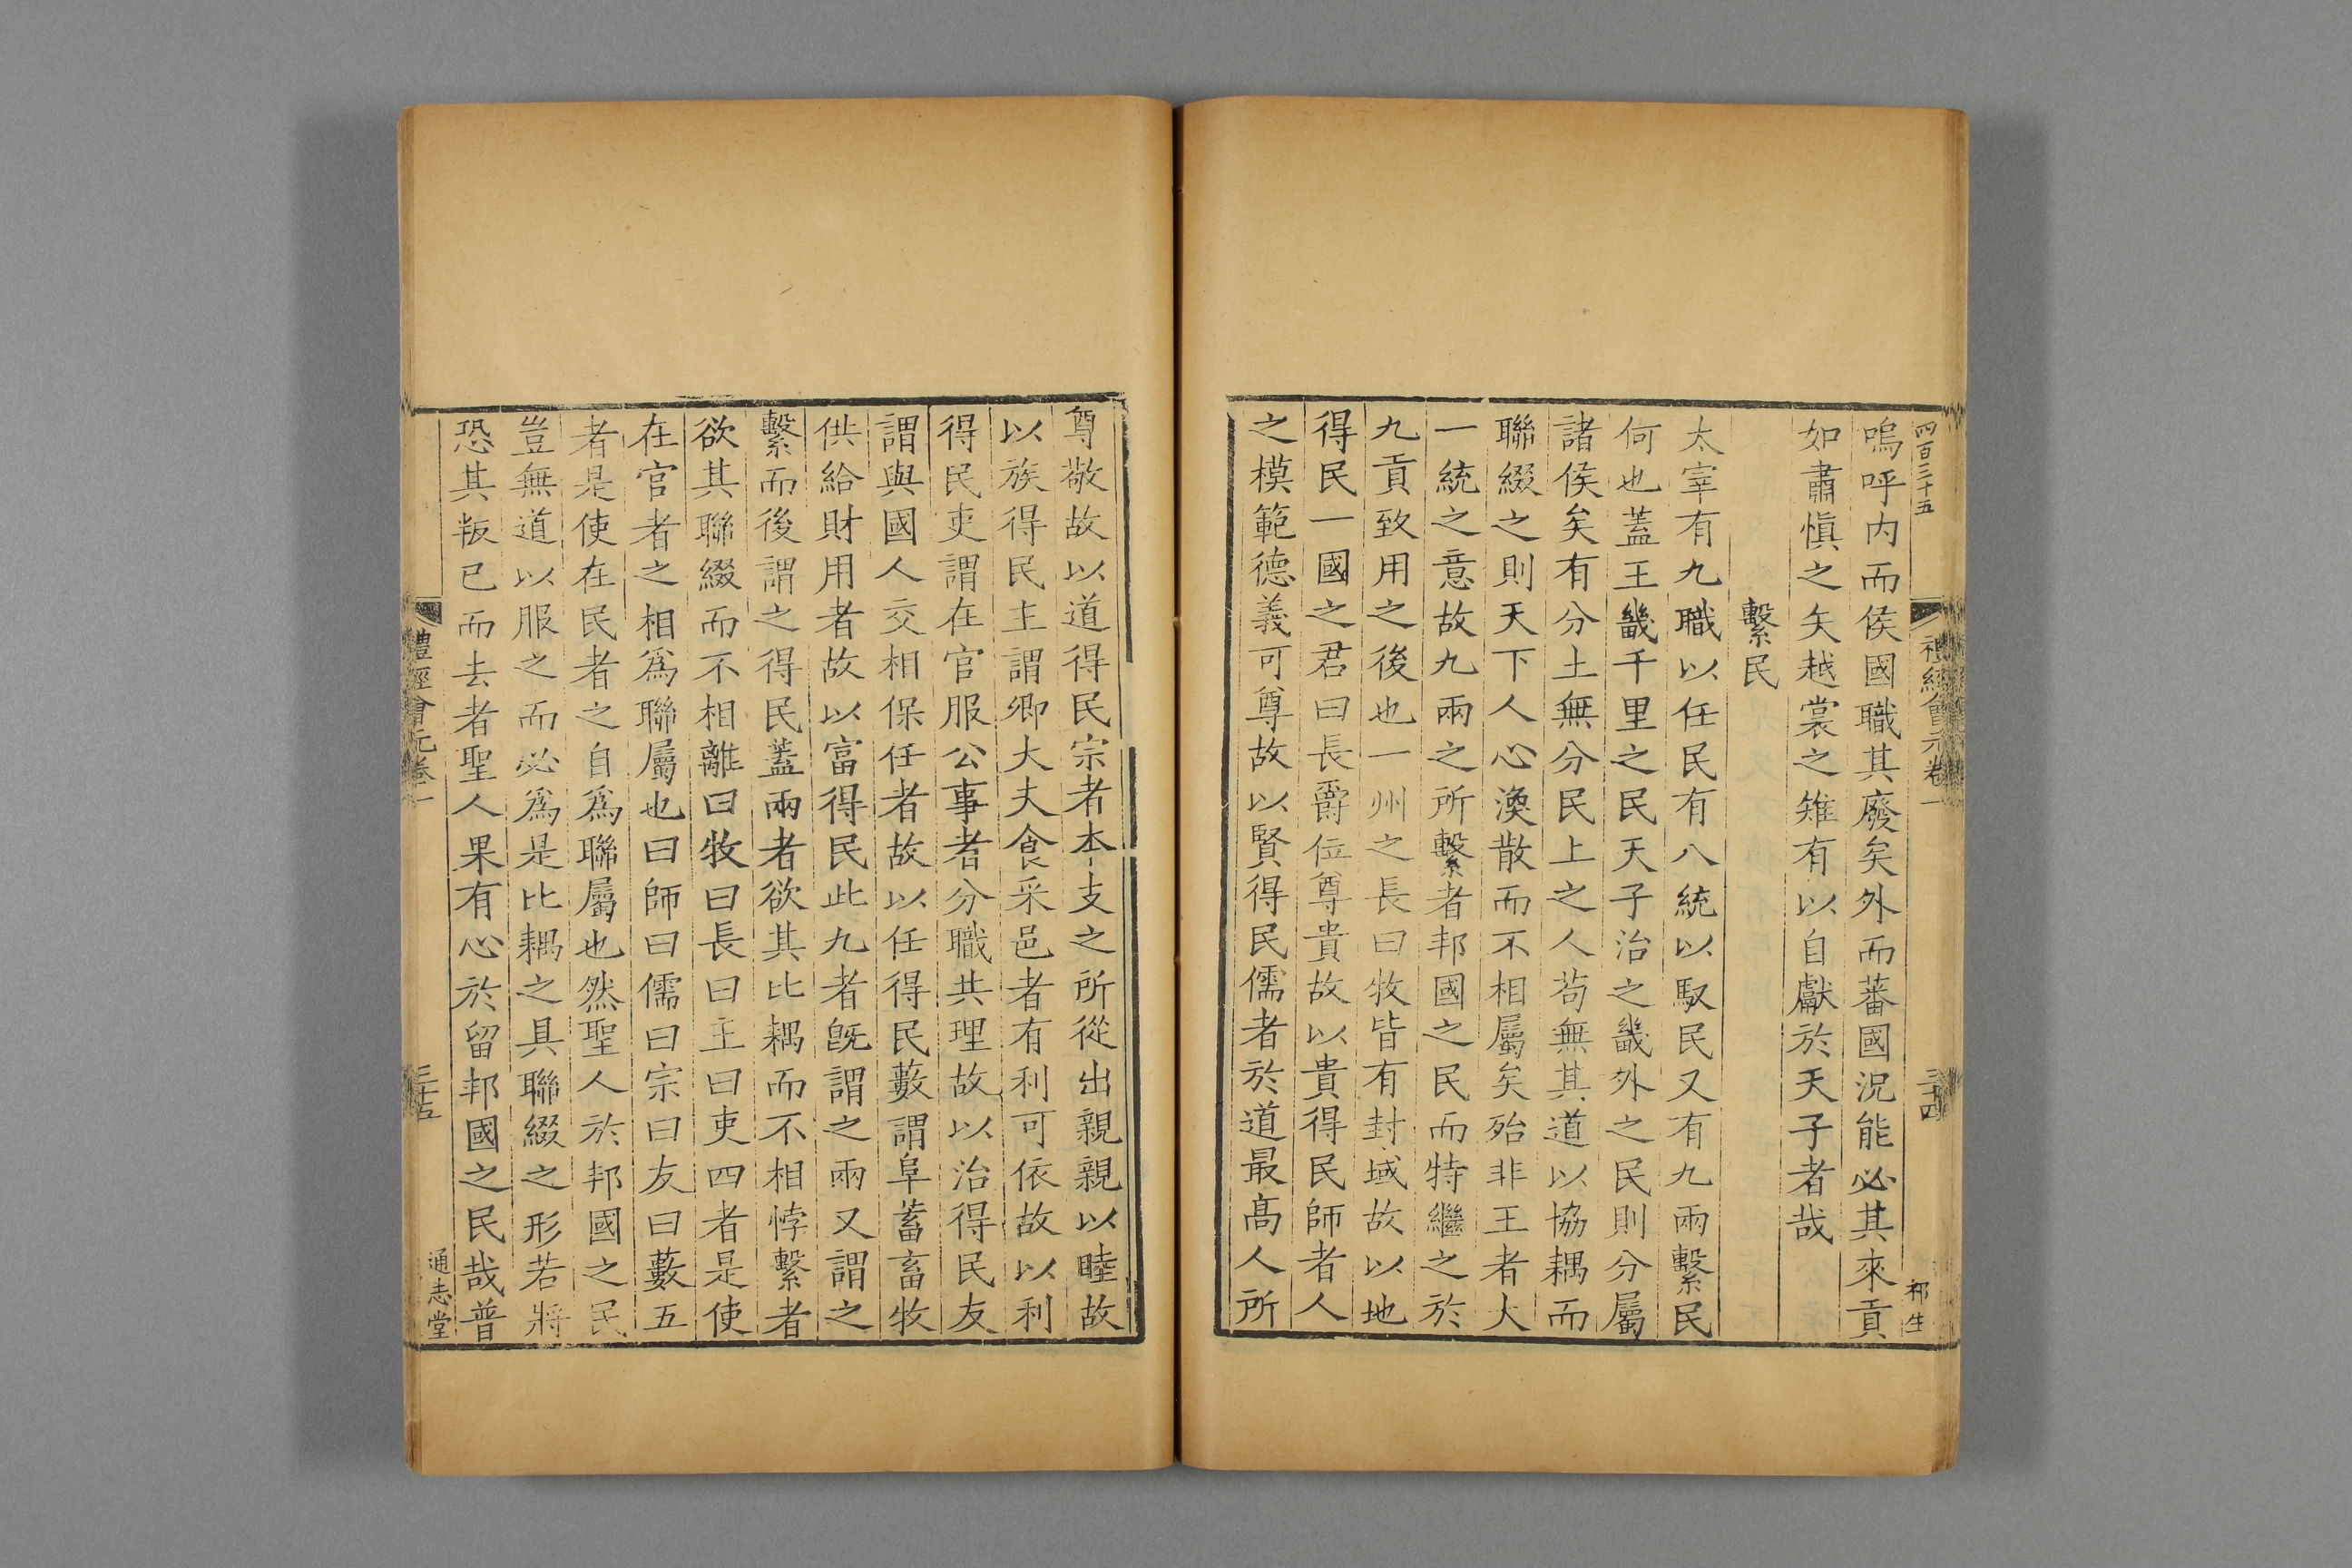 四百三十五
禮經會元卷一
三十四
祁生
嗚呼内而侯國職其廢矣外而蕃國况能必其來貢
如肅愼之矢越裳之雉有以自獻於天子者哉
繫民
太宰有九職以任民有八統以馭民又有九兩繫民
何也蓋王畿千里之民天子治之畿外之民則分屬
諸侯矣有分土無分民上之人苟無其道以協耦而
聯綴之則天下人心渙散而不相屬矣殆非王者大
一統之意故九兩之所繫者邦國之民而特繼之於
九貢致用之後也一州之長曰牧皆有封域故以地
得民一國之君曰長爵位尊貴故以貴得民師者人
之模範德義可尊故以賢得民儒者於道最高人所
尊敬故以道得民宗者本支之所從出親親以睦故
以族得民主謂卿大夫食采邑者有利可依故以利
得民吏謂在官服公事者分職共理故以治得民友
謂與國人交相保任者故以任得民藪謂阜蓄畜牧
供給財用者故以富得民此九者旣謂之兩又謂之
繫而後謂之得民蓋兩者欲其比耦而不相悖繫者
欲其聯綴而不相離曰牧曰長曰主曰吏四者是使
在官者之相爲聯屬也曰師曰儒曰宗曰友曰藪五
者是使在民者之自爲聯屬也然聖人於邦國之民
豈無道以服之而必爲是比耦之具聯綴之形若將
恐其叛已而去者聖人果有心於留邦國之民哉普
禮經會元卷一
三十五
通志堂